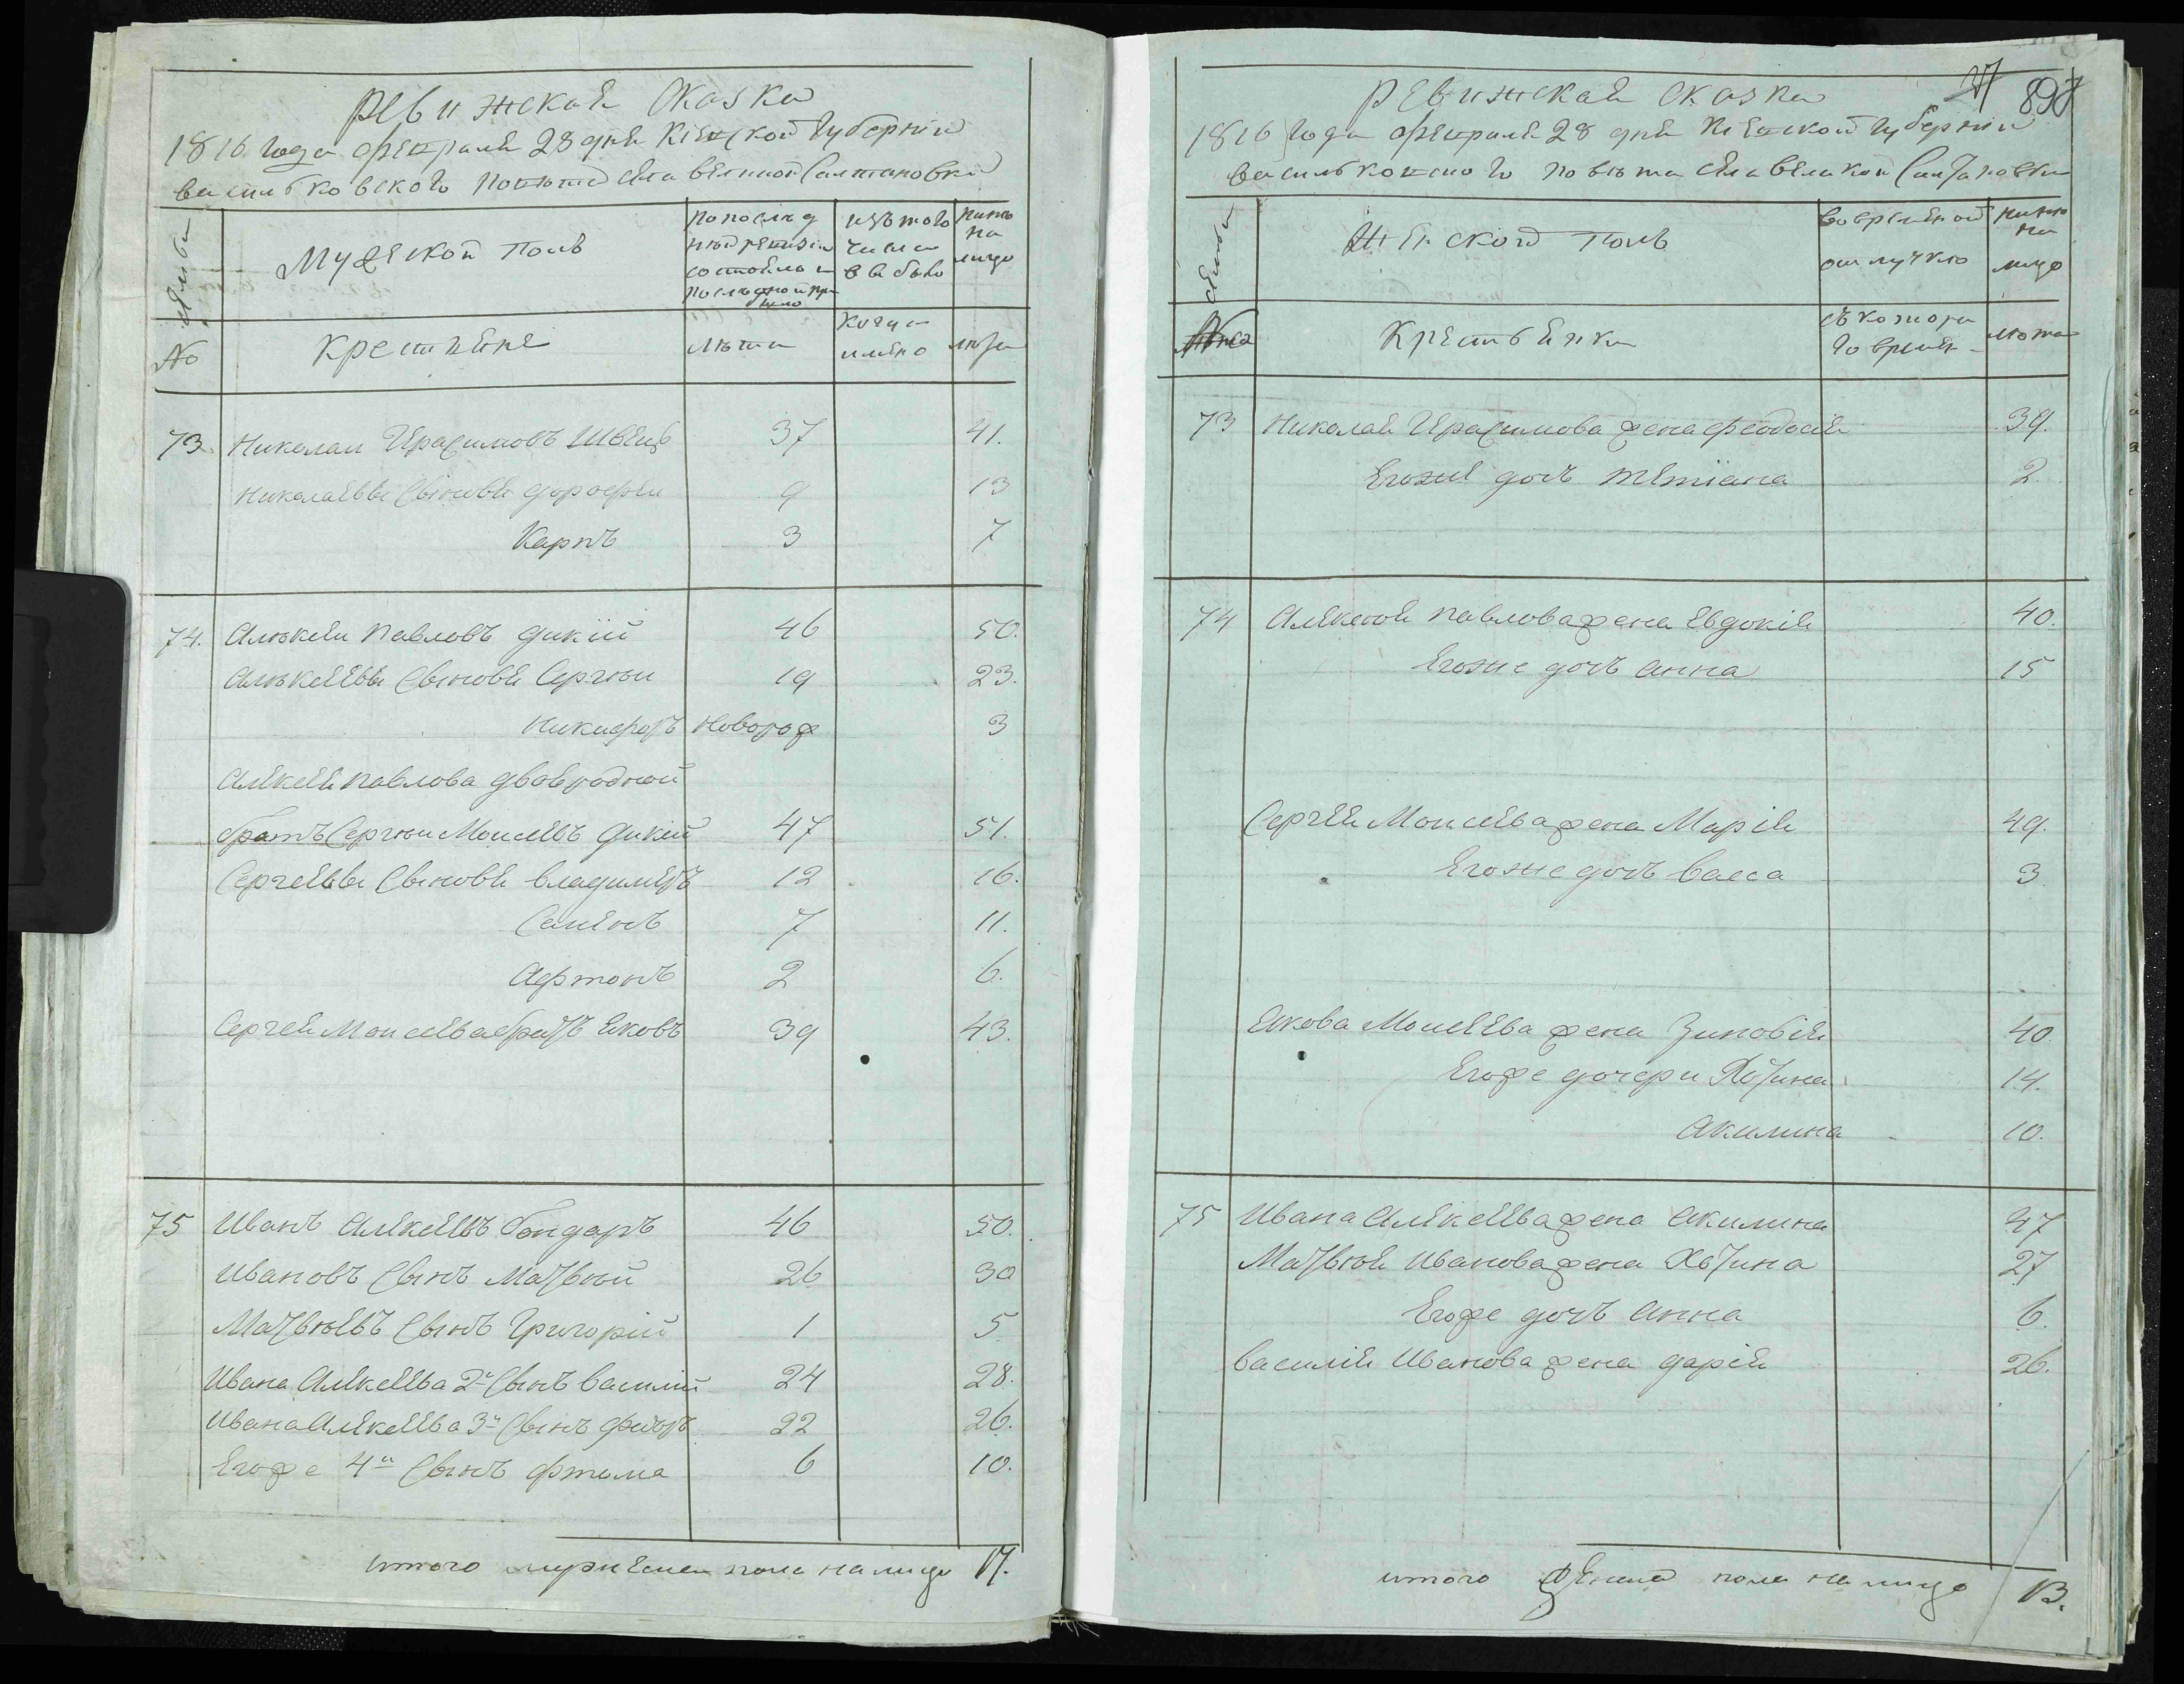 Ревижская сказка
1816 года февраля 28 дня Кіевской Губерніи
васильковского повета села великой Салтановки
семьи
Мужеской полъ
по послед
ней ревизіи
состояло и
после оной при
было
изъ того
числа
выбыло
ныне
на
лицо
№
Крестьяне
лета
когда
имено
лета
73 Николаи Герасимовъ Швецъ 37 41.
Николаевы Сынове дорофеи 9 13
Карпъ 3 7
74. Алексеи Павловъ дикій 46 50.
Алексеевы Сынове Сергеи 19 23.
Никифоръ Новорож 3
Алексея павлова двоеродной
братъ Сергеи Моисеевъ дикій 47 51.
Сергеевы Сынове владимеръ 12 16.
Семенъ 7 11.
Афтонъ 2 6.
Сергея Моисеева братъ Яковъ 39 43.
75 Иванъ Алексеевъ бондаръ 46 50.
Ивановъ Сынъ Матвей 26 30
Матвеевъ Сынъ Григорій 1 5.
Ивана Алексеева 2й Сынъ василій 24 28.
Ивана Алексеева 3й Сынъ фидоръ 22 26.
Егоже 4й Сынъ фтома 6 10.
итого мужеска пола налицо 17.
37 897
Ревижская сказка
1816 года февраля 28 дня Кіевской губерніи
васильковского повета села великой Салтановки
семьи
Женской полъ
во временой
отлучке
ныне
на
лицо
Крестьянки
съ котора
го времен
лета
73 Николая Герасимова жена феодосія 39.
Егоже дочъ тетіана 2.
74 Алексея павлова жена Евдокія 40.
Егоже дочъ анна 15
Сергея Моисеева жена Марія 49.
Егоже дочъ васса 3.
Якова Моисеева жена Зиновія 40
Егоже дочери Хотина 14.
Акилина 10.
75 Ивана Алексеева жена Акилина 47
Матвея Иванова жена Хотина 27
Егоже дочъ анна 6.
василія Иванова жена дарія 26.
итого женска пола налицо 13.